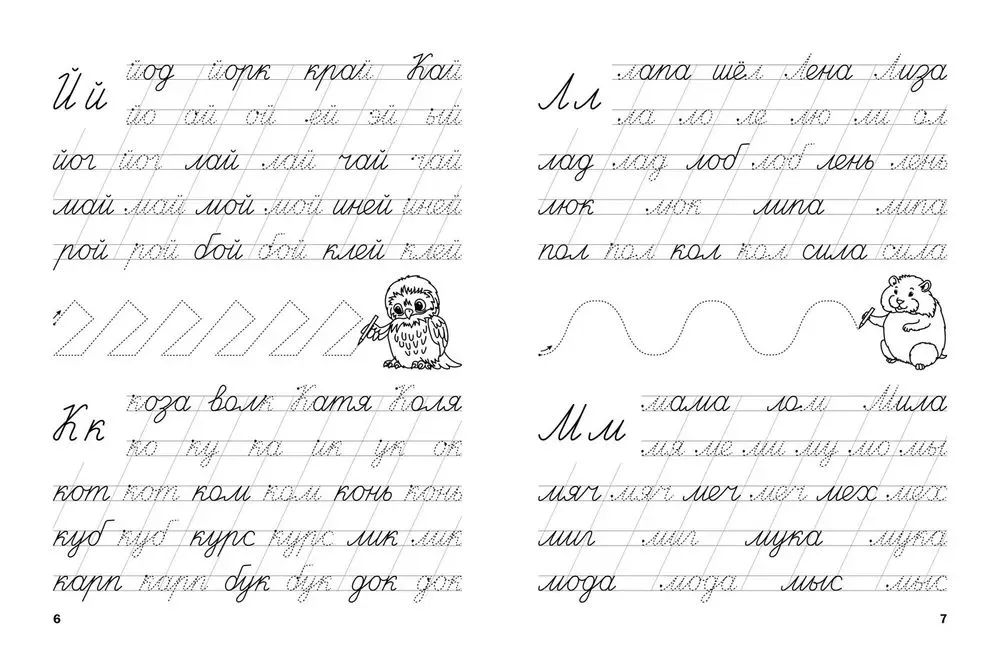 Йй
йод йорк край Кай
йо ай ой ей эй ый
йог йог лай лай чай чай
май май мой мой иней иней
рой рой бой бой клей клей
Кк
коза волк Катя Коля
ко ку ка ик ук ок
кот кот ком ком конь конь
куб куб курс курс лик лик
карп карп бук бук док док
6
Лл
лапа шёл Лена Лиза
ла ло ле лю ли ол
лад лад лоб лоб лень лень
люк люк липа липа
пол пол кол кол сила сила
Мм
мама лом Мила
мя ме ми му мо мы
мяч мяч меч меч мех мех
миг миг мука мука
мода мода мыс мыс
7